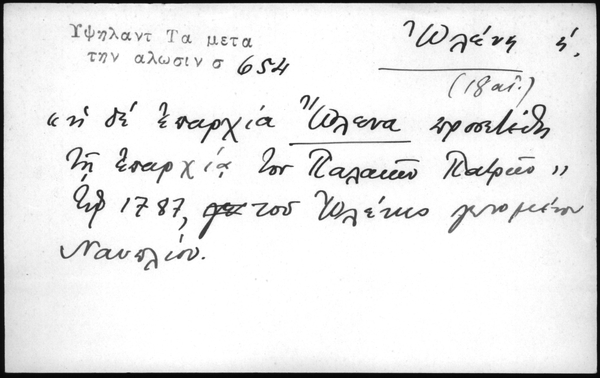 Υψηλαντ Τα μετα
την αλωσιν σ 654
Ὠλένη ἡ.
(18 αἰ.)
« ἡ δέ ἐπαρχία Ὤλενα προσετέθη
τῇ ἐπαρχίᾳ τοῦ Παλαιῶν Πατρῶν »
τῷ 1787, τοῦ Ὠλένης γενομένου
Ναυπλίου.